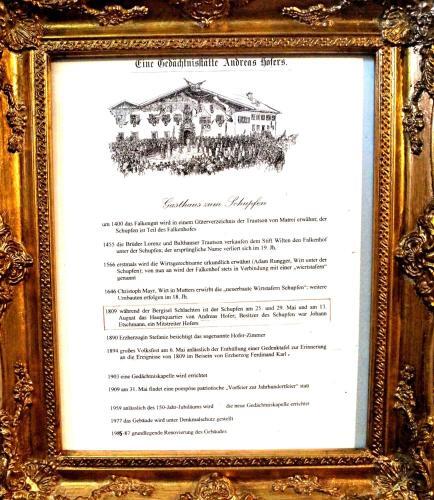 Eine Gedächtnisstätte Andreas Hofers.
Gasthaus zum Schupfen
um 1400 das Falkengut wird in einem Güterverzeichnis der Trautson von Matrei erwähnt, der
Schupfen ist Teil des Falkenhofes
1455 die Brüder Lorenz und Balthauser Trautson verkaufen dem Stift Wilten den Falkenhof
unter der Schupfen; der ursprüngliche Name verliert sich im 19. Jh.
1566 erstmals wird die Wirtsgerechtsame urkundlich erwähnt (Adam Rungger, Wirt unter der
Schupfen); von nun an wird der Falkenhof stets in Verbindung mit einer „wiertstafern"
genannt
1646 Christoph Mayr, Wirt in Mutters erwirbt die „neuerbaute Wirtstafern Schupfen"; weitere
Umbauten erfolgen im 18. Jh.
1809 während der Bergisel Schlachten ist der Schupfen am 25. und 29. Mai und am 13.
August das Hauptquartier von Andreas Hofer, Besitzer des Schupfen war Johann
Etschmann, ein Mitstreiter Hofers
1890 Erzherzogin Stefanie besichtigt das sogenannte Hofer-Zimmer
1894 großes Volksfest am 6. Mai anlässlich der Enthüllung einer Gedenktafel zur Erinnerung
an die Ereignisse von 1809 im Beisein von Erzherzog Ferdinand Karl
1903 eine Gedächtniskapelle wird errichtet
1909 am 31. Mai findet eine pompöse patriotische „Vorfeier zur Jahrhundertfeier" statt
1959 anlässlich des 150-Jahr-Jubiläums wird die neue Gedächtniskapelle errichtet
1977 das Gebäude wird unter Denkmalschutz gestellt
1985-87 grundlegende Renovierung des Gebäudes